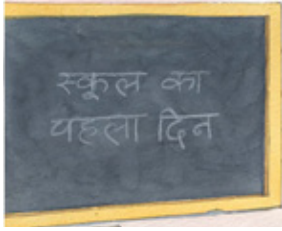 स्कूल का
पहला दिन